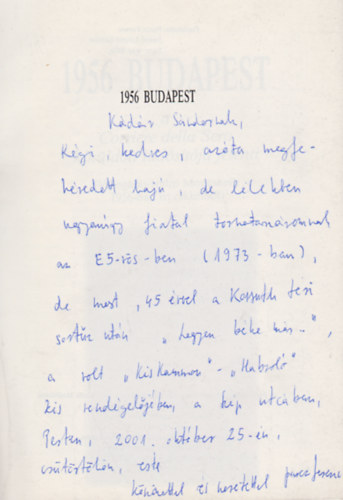 1956 BUDAPEST
Kádár Sándornak,
régi, kedves, azóta megfe-
héredett hajú, de lélekben
ugyanúgy fiatal
az E5-ös-ben (1973-ban),
de most, 45 évvel a Kossuth téri
sortűz után "Legyen béke már..",
a volt "Kiskammon" - "Habroló"
kis vendéglőjében, a Kép utcában,
Pesten, 2001. október 25-én,
csütörtökön, este
Köszönettel és szeretettel